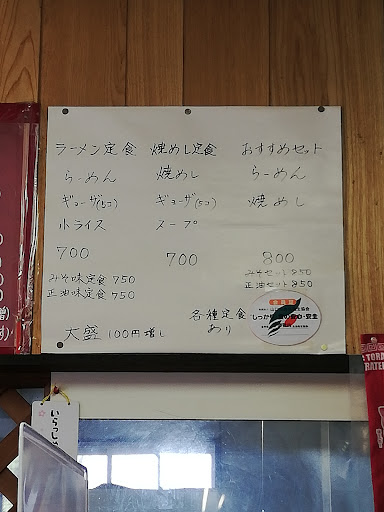 ラーメン定食
らーめん
ギョーザ(5コ)
小ライス
700
みそ味定食 750
正油味定食 750
焼めし定食
焼めし
ギョーザ(5コ)
スープ
700
おすすめセット
らーめん
焼めし
800
みそセット 850
正油セット 850
大盛 100円増し
各種定食
あり
安全
いらっしゃ